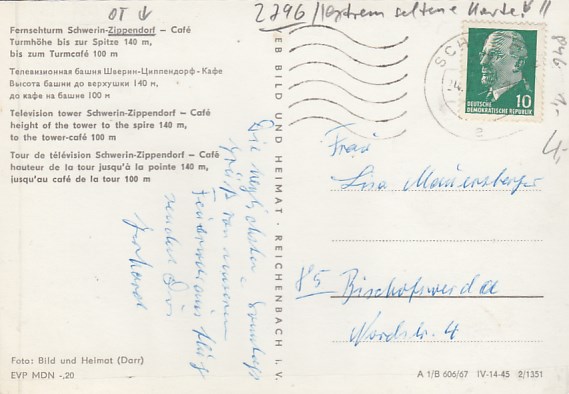 OT ↓
2796 / extrem seltene Karte! !!
846 1,-
4,-
Fernsehturm Schwerin-Zippendorf – Café
Turmhöhe bis zur Spitze 140 m,
bis zum Turmcafé 100 m
Телевизионная башня Шверин-Циппендорф-Кафе
Высота башни до верхушки 140 м,
до кафе на башне 100 м
Television tower Schwerin-Zippendorf – Café
height of the tower to the spire 140 m,
to the tower-café 100 m
Tour de télévision Schwerin-Zippendorf – Café
hauteur de la tour jusqu'à la pointe 140 m,
jusqu'au café de la tour 100 m
Die herzlichsten Sonntags
grüße von unserem
sendet Dir
Gerhard
Foto: Bild und Heimat (Darr)
EVP MDN -,20
VEB BILD UND HEIMAT · REICHENBACH I. V.
SCH
DEUTSCHE
DEMOKRATISCHE REPUBLIK
10
e
Frau
Lisa Mauersberger
85 Bischofswerda
Nordstr. 4
A 1/B 606/67 IV-14-45 2/1351